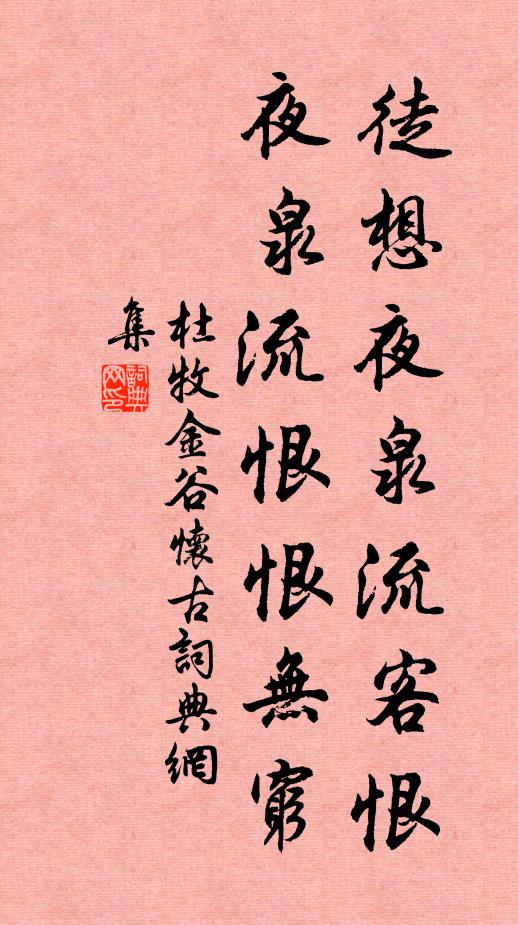 徒想夜泉流客恨
夜泉流恨恨無窮
杜牧金谷懷古詞典網
集
詞典
网印